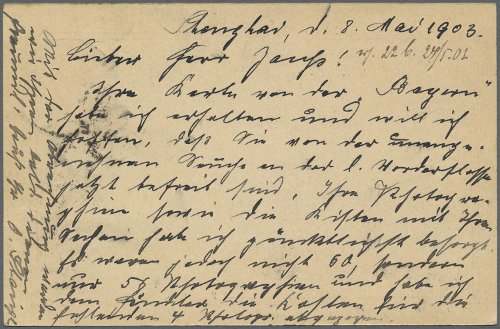 Shanghai, d. 8. Mai 1903.
Lieber Herr
Ihre Karte von der "Bayern"
habe ich erhalten und will ich
hoffen, daß Sie von der unange-
nehmen Seuche an der l. Vorderflosse
jetzt befreit sind. Ihre Photogra-
phien sowie die Kisten mit Ihren
Sachen habe ich pünktlichst besorgt.
Es waren jedoch nicht 60, sondern
nur 56 Photograph und habe ich
dem Künstler die Kosten für die
fehlenden 4 Photogr. abgezogen.